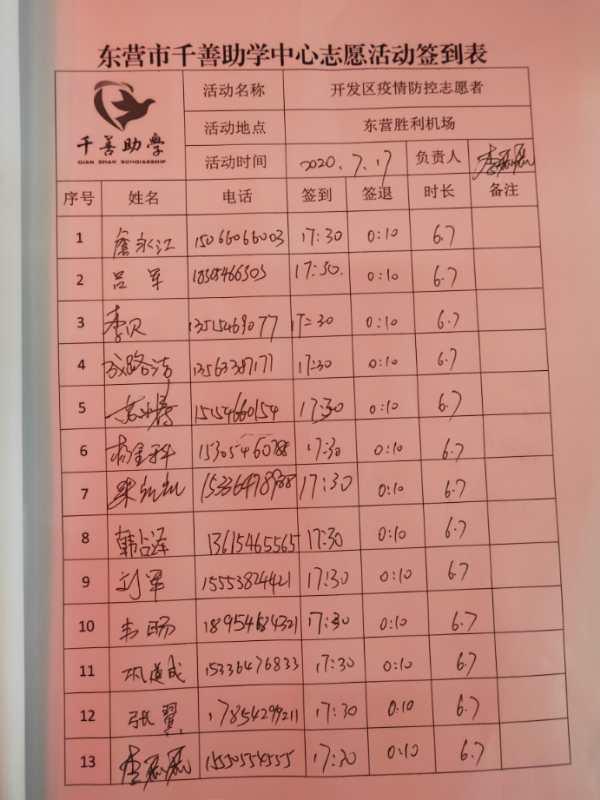 东营市千善助学中心志愿活动签到表
千善助学
QIAN SHAN SCHOLARSHIP
活动名称 开发区疫情防控志愿者
活动地点 东营胜利机场
活动时间 2020.7.17 负责人
序号 姓名 电话 签到 签退 时长 备注
1 詹永江 15066066003 17:30 0:10 6.7
2 吕军 17:50. 0:10 6.7
3 李贝 13515469077 17:30 0:10 6.7
4 17:30 0:10 6.7
5 15154660154 17:30 0:10 6.7
6 杨金科 17:30 0:10 6.7
7 17:30 0:10 6.7
8 韩占泽 13615465565 17:30 0:10 6.7
9 刘军 15553824421 17:30 0:10 6.7
10 17:30 0:10 6.7
11 巩道成 15336476833 17:30 0:10 6.7
12 张翼 17854299211 17:30 0:10 6.7
13 15550554555 17:30 0:10 6.7